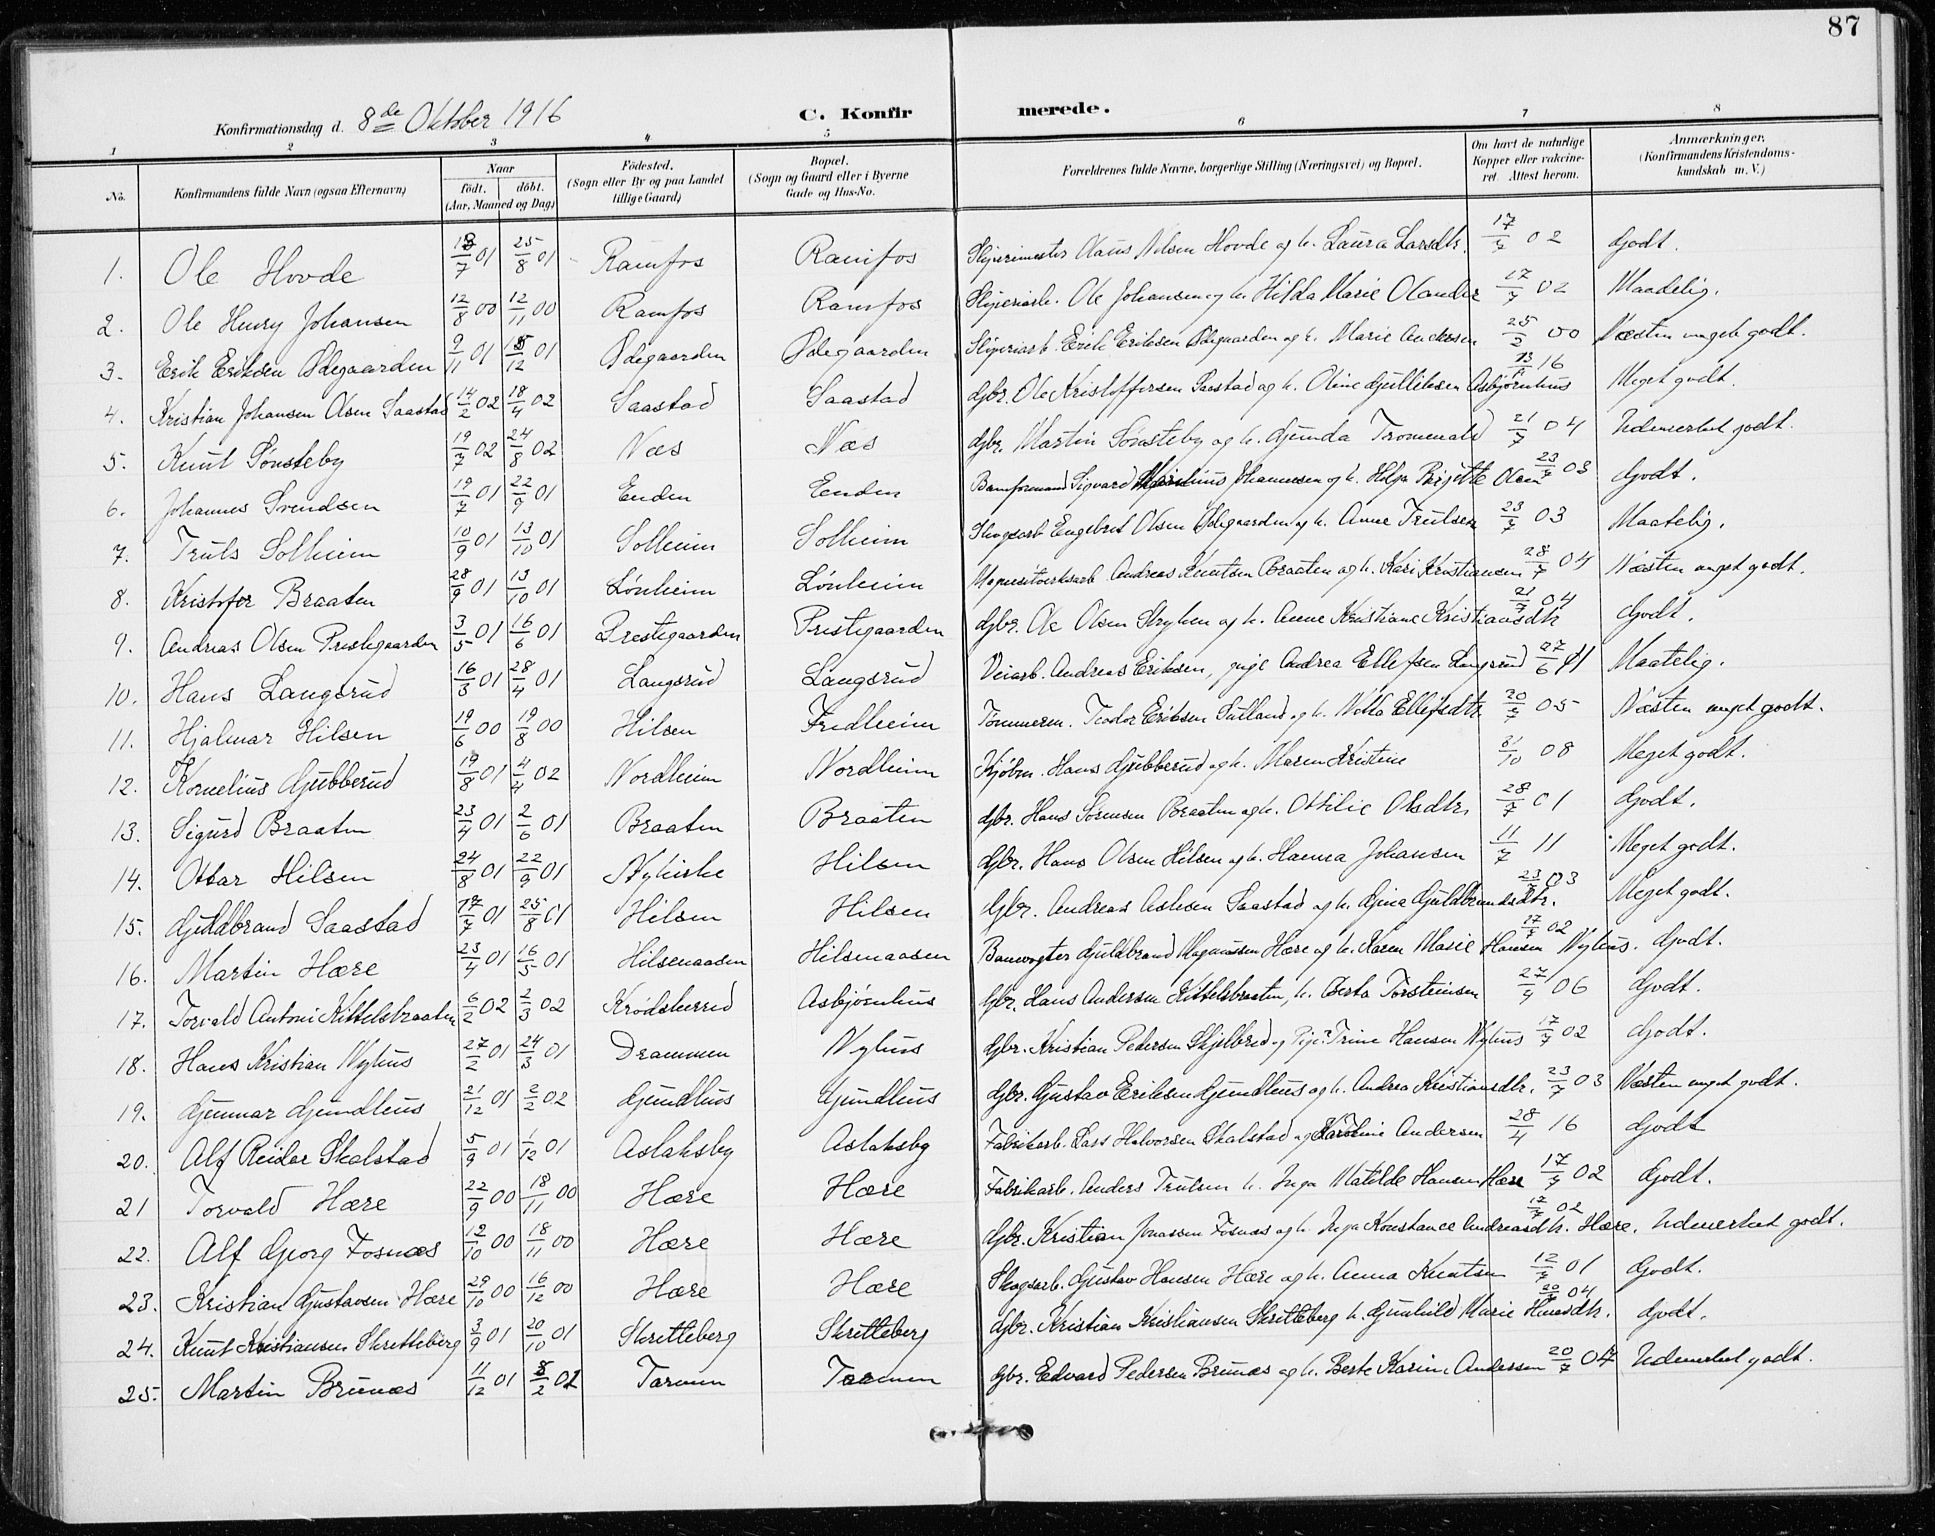 87
Konfirmationsdag d. 8de Oktober 1916
C. Konfirmerede.
1 2 3 4 5 6 7 8
No. Konfirmandens fulde Navn (ogsaa Efternavn) Naar født. døbt. (Aar, Maaned og Dag) Fødested. (Sogn eller By og paa Landet tillige Gaard) Bopæl. (Sogn og Gaard eller i Byerne Gade og Hus-No. Forældrenes fulde Navne, borgerlige Stilling (Næringsvei) og Bopæl. Om havt de naturlige Kopper eller vakcineret Attest herom. Anmærkninger. (Konfirmandens Kristendomskundskab m. V.)
1. Ole Hovde 18/7 01 25/8 01 Ramfos Ramfos Sliperimester Hans Nilsen Hovde og h. Laura Larsdtr. 17/7 02 Godt.
2. Ole Henry Johansen 12/8 00 12/11 00 Ramfos Ramfos Sliperiarb. Ole Johansen og h. Hilda Marie Olander 17/7 02 Maadelig.
3. Erik Eriksen Ødegaarden 9/11 01 /12 01 Ødegaarden Ødegaarden Sliperiarb. Erik Eriksen Ødegaarden og h. Marie Andersen 25/2 00 Næsten meget godt.
4. Kristian Johansen Olsen Saastad 14/2 02 18/4 02 Saastad Saastad Gbr. Ole Kristoffersen Saastad og h. Oline Gulliksen Asbjørnhus 16 Meget godt.
5. Knut Sønsteby 19/7 02 24/8 02 Næs Næs Gbr. Martin Sønsteby og h. Gunda Tromenald 21/7 04 Udmerket godt.
6. Johannes Svendsen 19/7 01 22/9 01 Enden Eenden Baneformand Sigvard Johannesen og h. Helga Birgitte Olsen 23/7 03 Godt.
7. Truls Solheim 10/9 01 13/10 01 Solheim Solheim Skogsarb. Engebret Olsen Ødegaarden og h. Anne Trulsen 23/7 03 Maatelig.
8. Kristofer Braaten 28/9 01 13/10 01 Lønheim Lønheim Magnesitverksarb. Andreas Knutsen Braaten og h. Kari Kristiansen 28/7 04 Næsten meget godt.
9. Andreas Olsen Prestegaarden 3/5 01 16/6 01 Prestegaarden Prestegaarden Gbr. Ole Olsen Stryken og h. Anne Kristiane Kristiansdtr 21/7 04 Godt.
10. Hans Langsrud 16/3 01 28/4 01 Langsrud Langsrud Veiarb. Andreas Eriksen, pige Andrea Ellefsen Langsrud 27/6 11 Maatelig.
11. Hjalmar Hilsen 19/6 00 19/8 00 Hilsen Fredheim Tømmerm. Teodor Eriksen og h. Netta Ellefsdtr. 20/7 05 Næsten meget godt.
12. Kornelius Gubberud 19/8 01 4/4 02 Nordheim Nordheim Kjøbm. Hans Gubberud og h. Maren Kristine 31/10 08 Meget godt.
13. Sigurd Braaten 23/4 01 2/6 01 Braaten Braaten Gbr. Hans Sørensen Braaten og h. Ottilie Olsdtr. 28/7 01 Godt.
14. Ottar Hilsen 24/8 01 22/9 01 Nykirke Hilsen Gbr. Hans Olsen Hilsen og h. Hanna Johansen 11/7 11 Meget godt.
15. Guldbrand Saastad 17/7 01 25/8 01 Hilsen Hilsen Gbr. Andreas Aslesen Saastad og h. Gina Guldbrandsdtr. 23/7 03 Meget godt.
16. Martin Hære 23/4 01 16/5 01 Hilsenaasen Hilsenaasen Banevogter Guldbrand Magnussen Hære og h. Karen Marie Hansen Nyhus. 17/7 02 Godt.
17. Torvald Antoni Kittelsbraaten 6/2 02 2/3 02 Krødsherred Asbjørnhus Gbr. Hans Andersen Kittelsbraaten, h. Berta Torsteinsen 27/4 06 Godt.
18. Hans Kristian Nyhus 27/2 01 24/3 01 Drammen Nyhus Gbr. Kristian Pedersen Skjelbred og Pige Trine Hansen Nyhus 17/7 02 Godt.
19. Gunnar Gundhus 21/12 01 2/2 02 Gundhus Gundhus Gbr. Gustav Eriksen Gundhus og h. Andrea Kristiansdtr. 23/7 03 Næsten meget godt.
20. Alf Reidar Skalstad 5/9 01 1/12 01 Aslaksby Aslaksby Fabrikarb. Lars Halvorsen Skalstad og Karoline Andersen 28/4 16 Godt
21 Torvald Hære 22/9 00 18/11 00 Hære Hære Fabrikarb. Anders Trulsen h. Inga Matilde Hansen Hære 17/7 02 Godt.
22. Alf Georg Fosnæs 12/10 00 18/11 00 Hære Hære Gbr. Kristian Jonassen Fosnæs og h. Inga Konstance Andreasdtr. Hære. 17/7 02 Udmerket godt.
23. Kristian Gustavsen Hære 29/10 00 16/12 00 Hære Hære Skogsarb. Gustav Hansen Hære og h. Anna Knutsen 12/7 01 Godt.
24. Knut Kristiansen Skretteberg 3/9 01 20/10 01 Skretteberg Skretteberg Gbr. Kristian Kristiansen Skretteberg h. Gunhild Marie Hansdtr. 20/7 04 Godt.
25. Martin Brunæs 11/12 01 8/2 02 Tarmen Taamen Gbr. Edvard Pedersen Brunæs og h. Berte Karine Andersen 20/7 04 Udmerket godt.